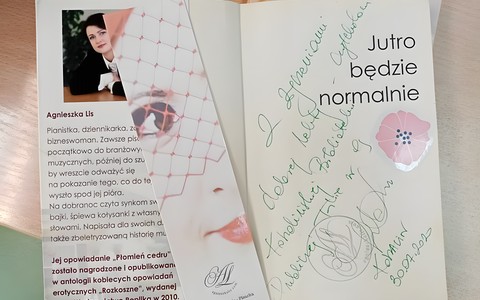 Agnieszka Lis
Pianistka, dziennikarka, 
bizneswoman. Zawsze
początkowo do branżowy
muzycznych, później do
by wreszcie odważyć się
na pokazanie tego, co do
wyszło spod jej pióra.
Na dobranoc czyta synkom
bajki, śpiewa kołysanki z własny
słowami. Napisała dla swoich d
także zbeletryzowaną historię mu
Jej opowiadanie „Płomień cedru”
zostało nagrodzone i opublikowan
w antologii kobiecych opowiadań
erotycznych „Rozkoszne”, wydanej
Replika w 2010.
AL
Jutro
będzie
normalnie
Z życzeniami
dobrej lektury
czytelnikom
Bibliotece
Publicznej Filia nr 9